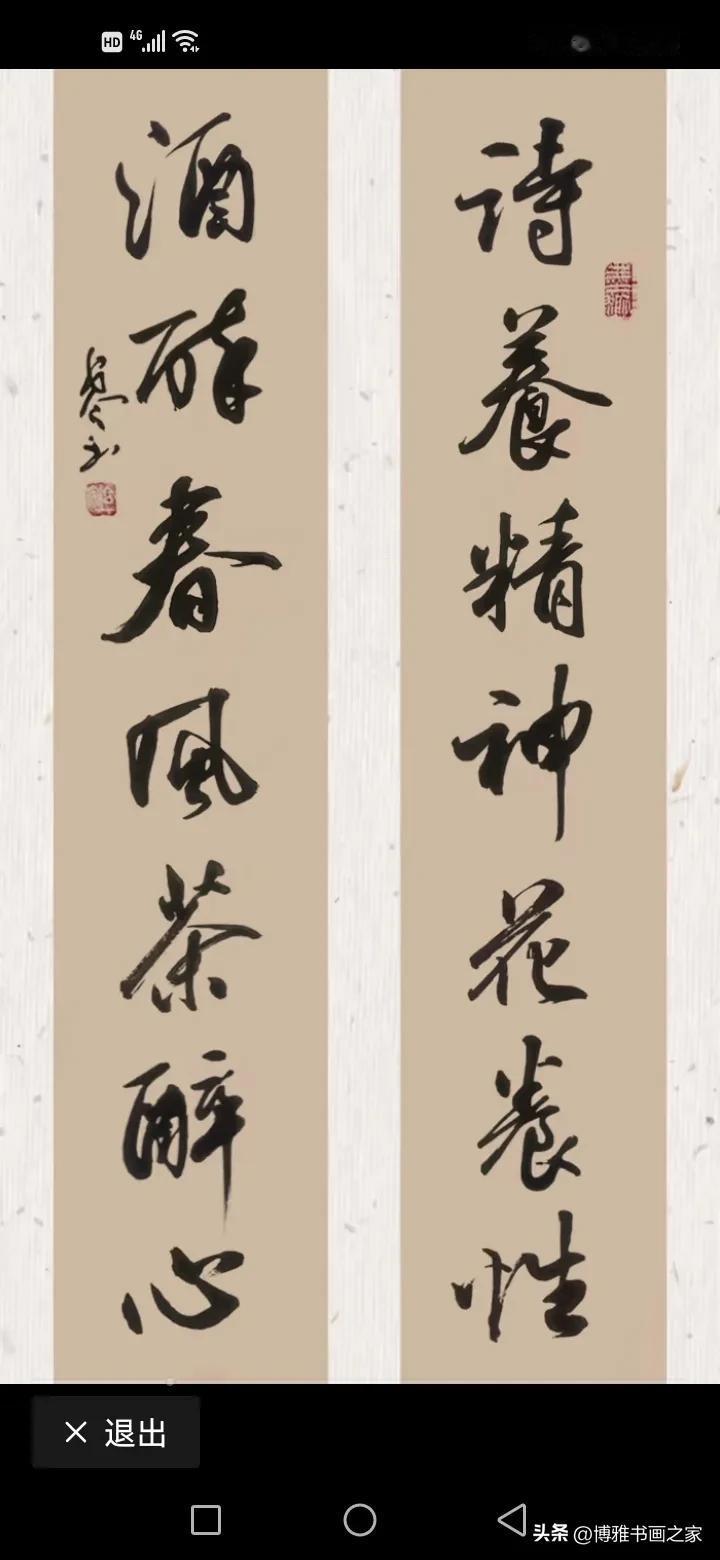 HD 4G
詩養精神花養性
酒醉春風茶醉心
退出
头条 @博雅书画之家